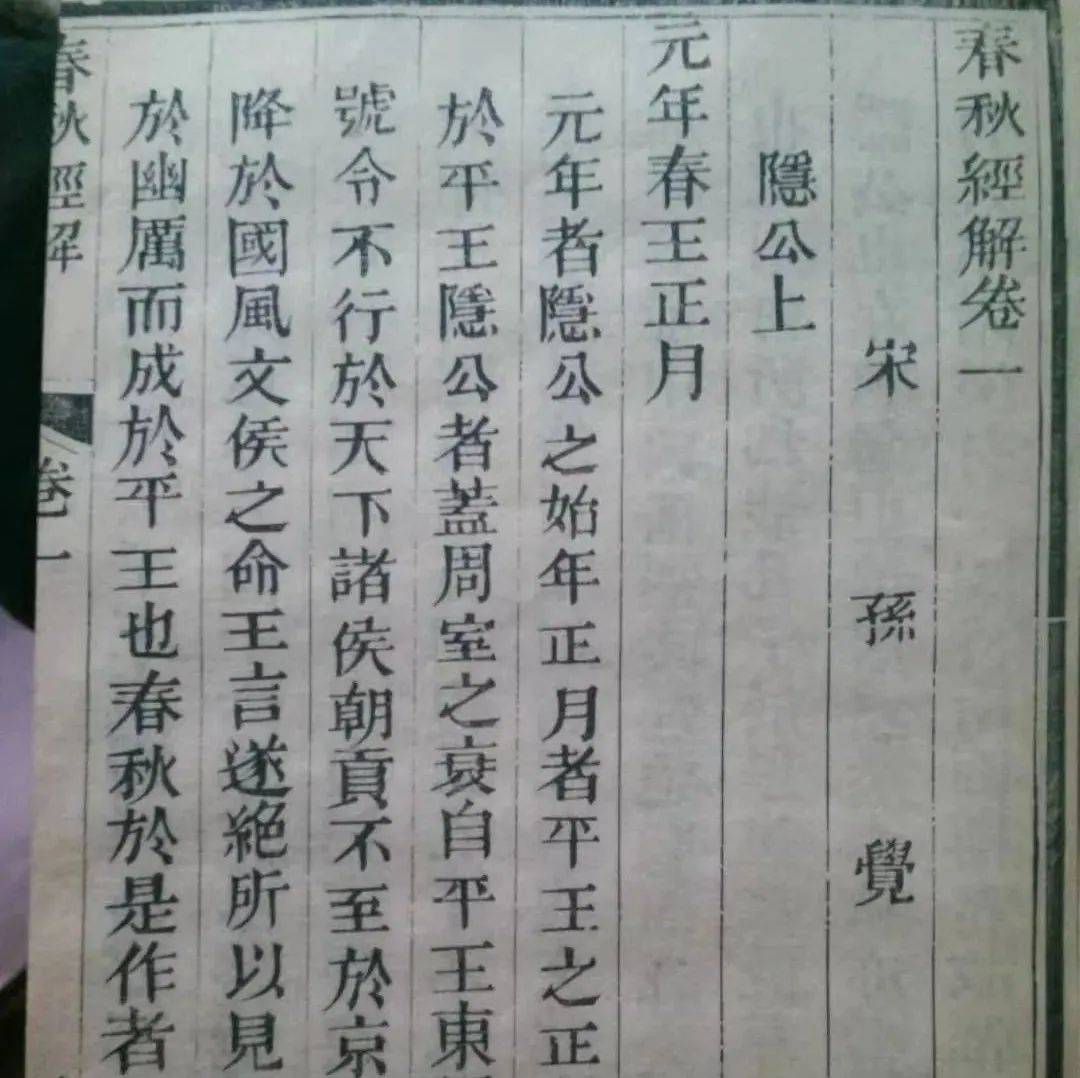 春秋經解卷一
宋 孫 覺
隱公上
元年春王正月
元年者隱公之始年正月者平王之正
於平王隱公者蓋周室之衰自平王東
號令不行於天下諸侯朝貢不至於京
降於國風文侯之命王言遂絕所以見
於幽厲而成於平王也春秋於是作者
春秋經解 卷一